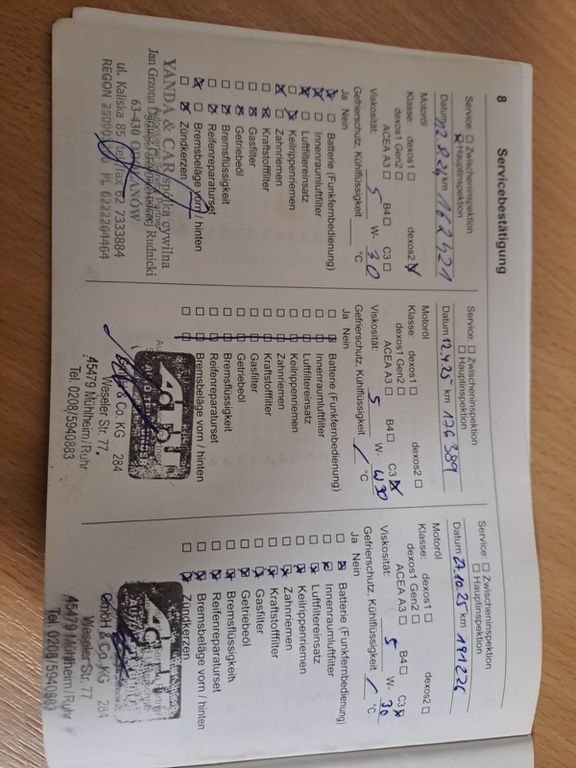 8
Servicebestätigung
Service: ☐ Zwischeninspektion
☒ Hauptinspektion
Datum 12.8.24 km 162421
Motoröl
Klasse: dexos1 ☐ dexos2 ☒
dexos1 Gen2 ☐
ACEA A3 ☐ B4 ☐ C3 ☐
Viskosität: 5 W- 30
Gefrierschutz, Kühlflüssigkeit °C
Ja Nein
Batterie (Funkfernbedienung)
Innenraumluftfilter
Luftfiltereinsatz
Keilrippenriemen
Zahnriemen
Kraftstofffilter
Gasfilter
Getriebeöl
Bremsflüssigkeit
Reifenreparaturset
Bremsbeläge vorn / hinten
Zündkerzen
YANDA & CAR spółka cywilna
Rudnicki
63-430
ul. Kaliska 85 tel/fax 62 7333884
REGON PL 6222764464
Service: ☐ Zwischeninspektion
☐ Hauptinspektion
Datum 12.4.25 km 176389
Motoröl
Klasse: dexos1 ☐ dexos2 ☐
dexos1 Gen2 ☐
ACEA A3 ☐ B4 ☐ C3 ☒
Viskosität: 5 W- W30
Gefrierschutz, Kühlflüssigkeit / °C
Ja Nein
☐ ☐ Batterie (Funkfernbedienung)
☐ ☐ Innenraumluftfilter
☐ ☐ Luftfiltereinsatz
☐ ☐ Keilrippenriemen
☐ ☐ Zahnriemen
☐ ☐ Kraftstofffilter
☐ ☐ Gasfilter
☐ ☐ Getriebeöl
☐ ☐ Bremsflüssigkeit
☐ ☐ Reifenreparaturset
☐ ☐ Bremsbeläge vorn / hinten
☐ ☐ Zündkerzen
& Co. KG 284
Weseler Str. 77
45479 Mühlheim/Ruhr
Tel. 0208/5940883
Service: ☐ Zwischeninspektion
☐ Hauptinspektion
Datum 27.10.25 km 191226
Motoröl
Klasse: dexos1 ☐ dexos2 ☐
dexos1 Gen2 ☐
ACEA A3 ☐ B4 ☐ C3 ☒
Viskosität: 5 W- 30
Gefrierschutz, Kühlflüssigkeit / °C
Ja Nein
☐ ☒ Batterie (Funkfernbedienung)
☐ ☒ Innenraumluftfilter
☐ ☒ Luftfiltereinsatz
☐ ☒ Keilrippenriemen
☐ ☒ Zahnriemen
☐ ☒ Kraftstofffilter
☐ ☒ Gasfilter
☐ ☒ Getriebeöl
☐ ☒ Bremsflüssigkeit
☐ ☒ Reifenreparaturset
☐ ☒ Bremsbeläge vorn / hinten
☐ ☒ Zündkerzen
GmbH & Co. KG 284
Weseler Str. 77
45479 Mühlheim/Ruhr
Tel. 0208/5940883